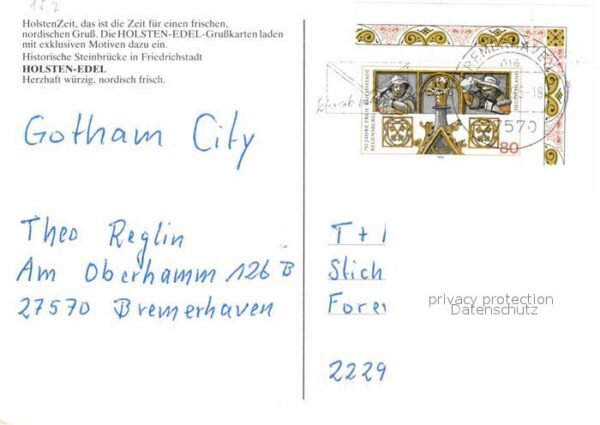 HolstenZeit, das ist die Zeit für einen frischen,
nordischen Gruß. Die HOLSTEN-EDEL-Grußkarten laden
mit exklusiven Motiven dazu ein.
Historische Steinbrücke in Friedrichstadt
HOLSTEN-EDEL
Herzhaft würzig, nordisch frisch.
Gotham City
Theo Reglin
Am Oberhamm 126 B
27570 Bremerhaven
BREMERHAVEN
7570
750 JAHRE FREIE REICHSSTADT
REGENSBURG
DEUTSCHLAND
80
T +
Stich
Fore
2229
privacy protection
Datenschutz